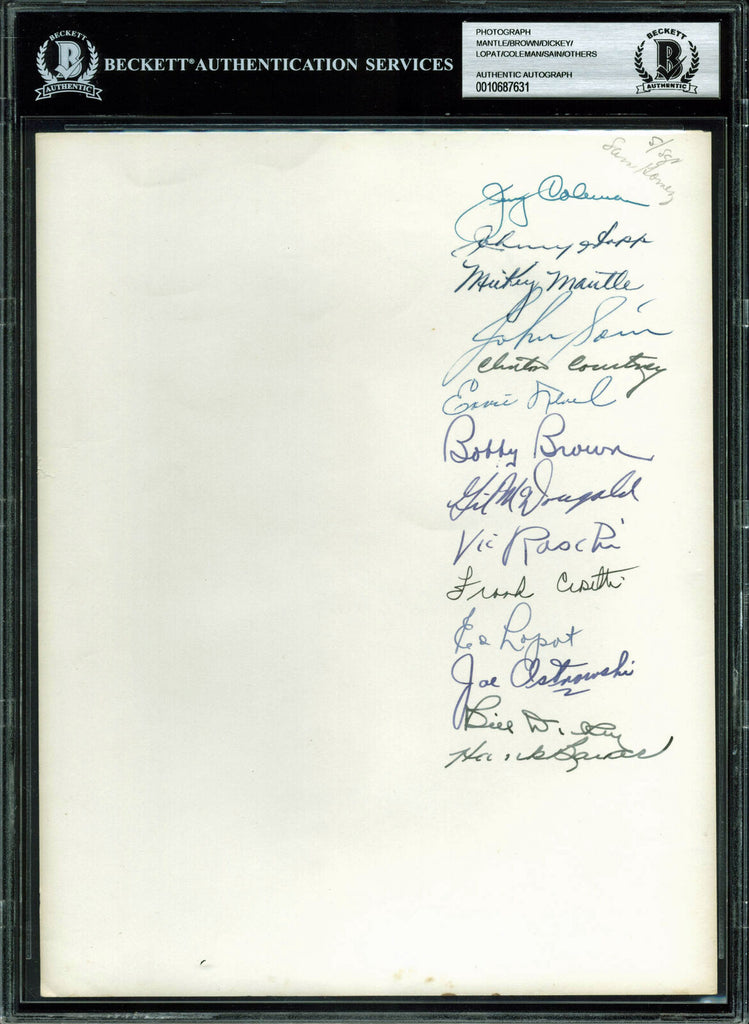 BECKETT
B
AUTHENTIC
BECKETT® AUTHENTICATION SERVICES
PHOTOGRAPH
MANTLE/BROWN/DICKEY/
LOPAT/COLEMAN/SAIN/OTHERS
AUTHENTIC AUTOGRAPH
0010687631
BECKETT
B
AUTHENTIC
Jerry Coleman
Johnny Hopp
Mickey Mantle
John Sain
Clinton Courtney
Ernie Nevel
Bobby Brown
Gil McDougald
Vic Raschi
Frank Crosetti
Ed Lopat
Joe Ostrowski
Bill Dickey
Hank Bauer